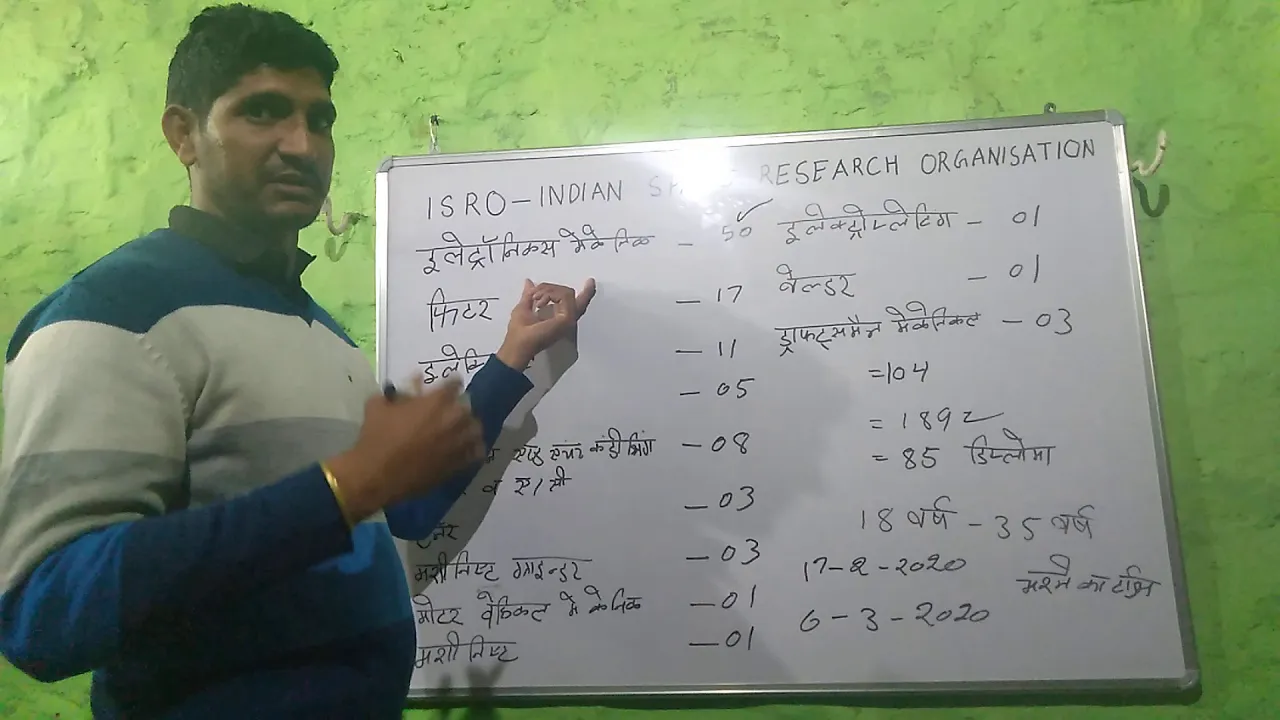 ISRO-INDIAN RESEARCH ORGANISATION
इलेट्रॉनिकस मेकेनिक - 50
फिटर - 17
- 11
- 05
एण्ड एयर कंडीसिंग - 08
- 03
मशीनिष्ट ग्राइन्डर - 03
मोटर वेहिकल मेकेनिक - 01
मशीनिष्ट - 01
इलेक्ट्रोप्लेटिंग - 01
वेल्डर - 01
ड्राफ्ट्समैन मेकेनिकल - 03
=104
= 189
= 85 डिप्लोमा
18 वर्ष - 35 वर्ष
17-2-2020
6-3-2020